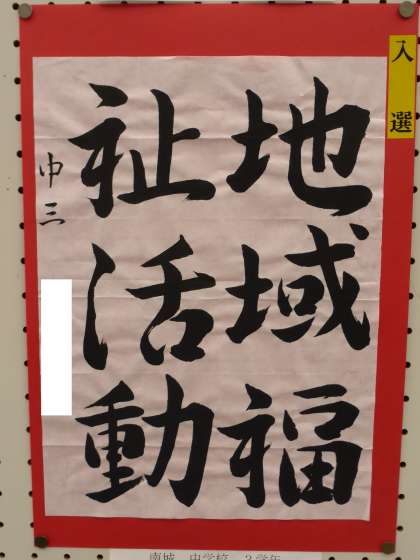 入選
地域福
祉活動
中三
南城 中学校 3学年